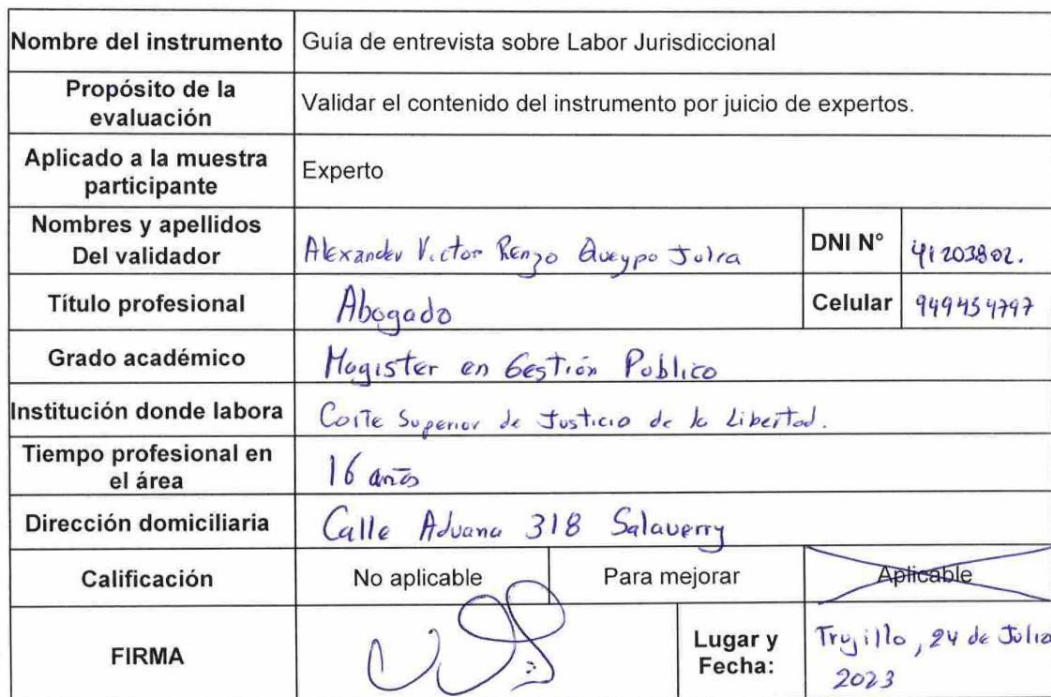 Nombre del instrumento Guía de entrevista sobre Labor Jurisdiccional
Propósito de la
evaluación
Validar el contenido del instrumento por juicio de expertos.
Aplicado a la muestra
participante
Experto
Nombres y apellidos
Del validador
Alexander Victor Renzo Queypo Julca
DNI N°
41203802.
Título profesional Abogado Celular 949454797
Grado académico Magister en Gestión Publica
Institución donde labora Corte Superior de Justicia de la Libertad.
Tiempo profesional en
el área
16 años
Dirección domiciliaria Calle Aduana 318 Salaverry
Calificación No aplicable Para mejorar Aplicable
FIRMA
Lugar y
Fecha:
Trujillo, 24 de Julio
2023